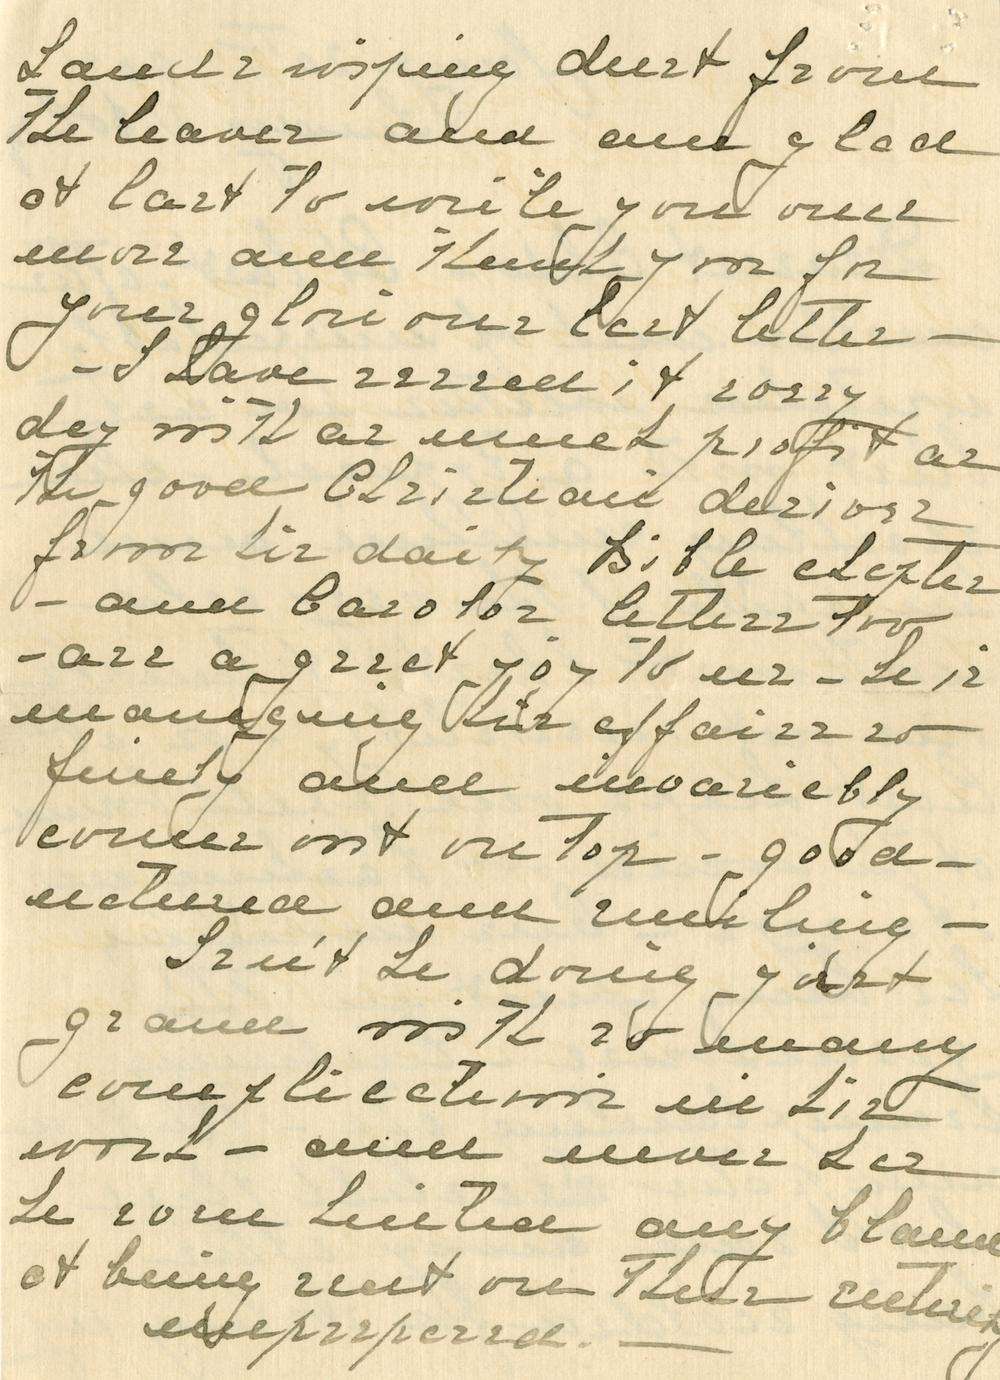 hands wiping dust from
the leaves and am glad
at last to write you once
more and thank you for
your glorious last letter —
- I have reread it every
day with as much profit as
the good Christian derives
from his daily Bible chapter
- and letters too
- are a great joy to us - he is
managing his affairs so
finely and invariably
comes out on top - good-
natured and smiling -
Isn't he doing just
grand with so many
complications in his
work - and never has
he even hinted any blame
at being sent on them
unprepared. —